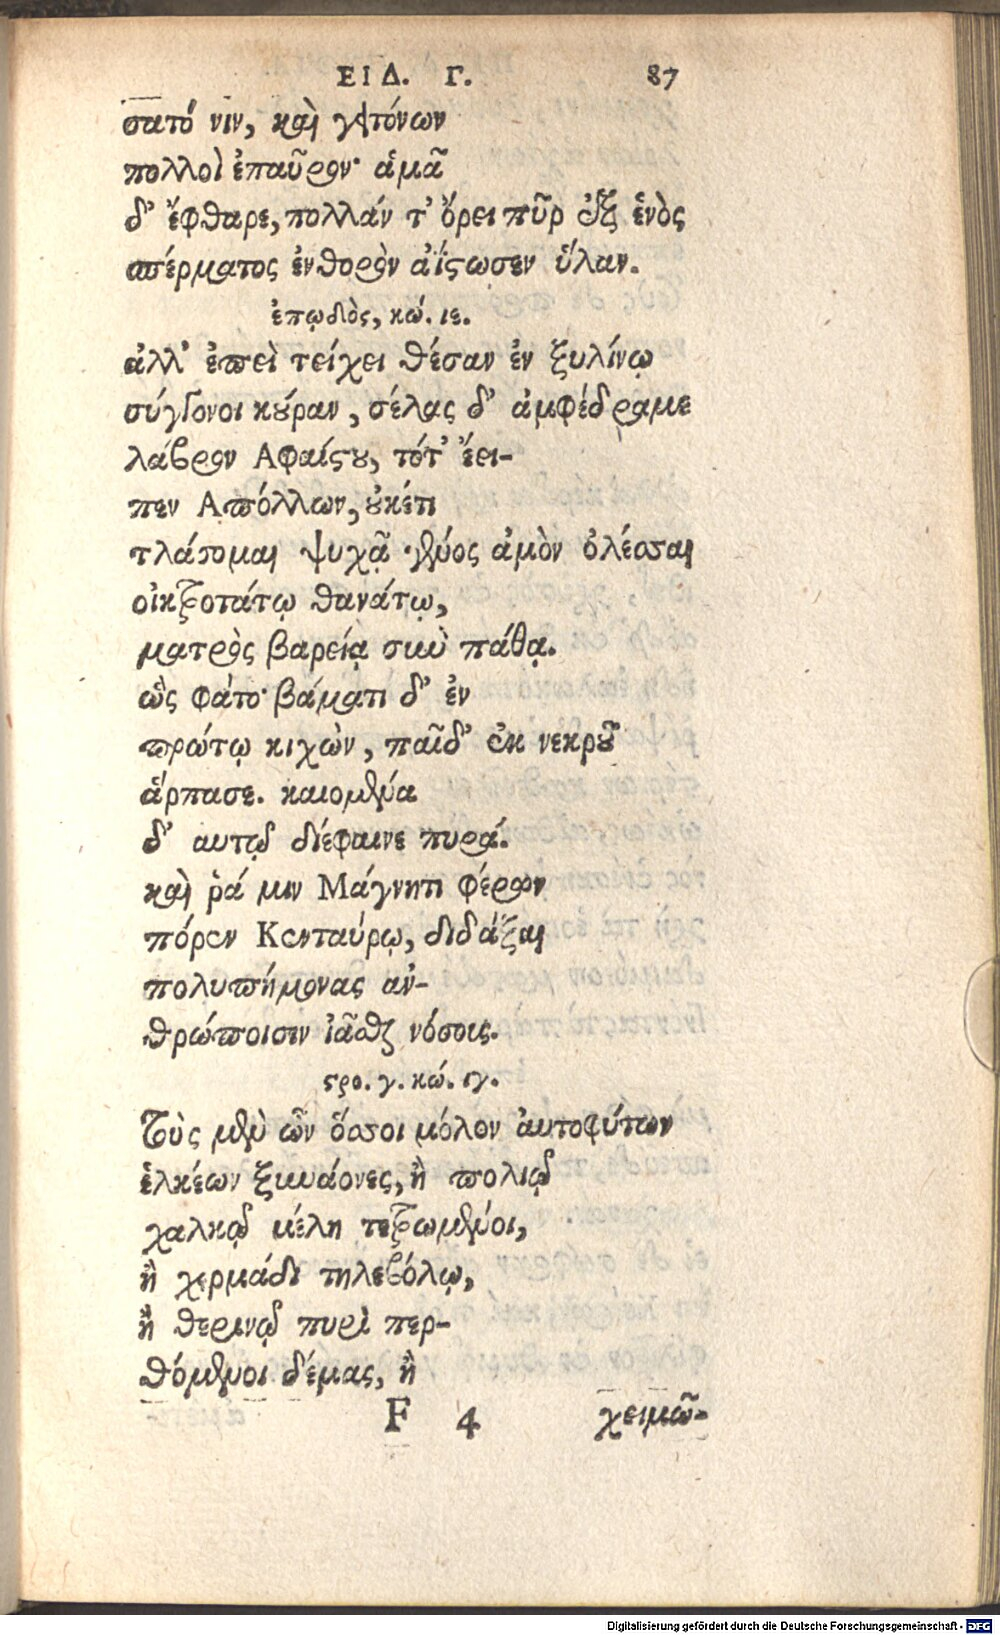 ΕΙΔ. Γ. 87
σατό νιν, καὶ γειτόνων
πολλοὶ ἐπαῦρον· ἁμᾶ
δ᾽ ἔφθαρε, πολλάν τ᾽ ὄρει πῦρ ἐξ ἑνὸς
σπέρματος ἐνθορὸν ἀΐστωσεν ὕλαν.
ἐπῳδὸς, κώ. ιε.
ἀλλ᾽ ἐπεὶ τείχει θέσαν ἐν ξυλίνῳ
σύγγονοι κούραν, σέλας δ᾽ ἀμφέδραμε
λάβρον Αφαίστου, τότ᾽ ἔει-
πεν Απόλλων, οὐκέτι
τλάσομαι ψυχᾷ γένος ἁμὸν ὀλέσσαι
οἰκτροτάτῳ θανάτῳ,
ματρὸς βαρείᾳ σὺν πάθᾳ.
ὣς φάτο· βάματι δ᾽ ἐν
πρώτῳ κιχὼν, παῖδ᾽ ἐκ νεκροῦ
ἅρπασε. καιομένα
δ᾽ αυτῷ διέφαινε πυρά.
καὶ ῥά μιν Μάγνητι φέρων
πόρεν Κενταύρῳ, διδάξαι
πολυπήμονας αν-
θρώποισιν ἰᾶσθαι νόσους.
στρο. γ. κώ. ιγ.
Τοὺς μὲν ὦν ὅσσοι μόλον αυτοφύτων
ἑλκέων ξυνάονες, ἢ πολιῷ
χαλκῷ μέλη τετρωμένοι,
ἢ χερμάδι τηλεβόλῳ,
ἢ θερινῷ πυρὶ περ-
θόμενοι δέμας, ἢ
F 4 χειμῶ-
Digitalisierung gefördert durch die Deutsche Forschungsgemeinschaft - DFG